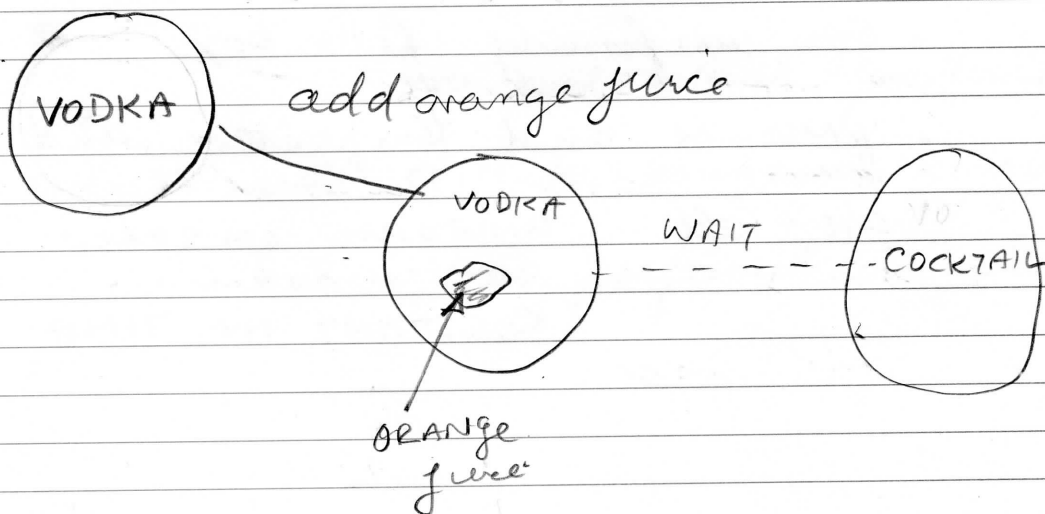 VODKA
add orange juice
VODKA
WAIT
COCKTAIL
ORANGE
juice